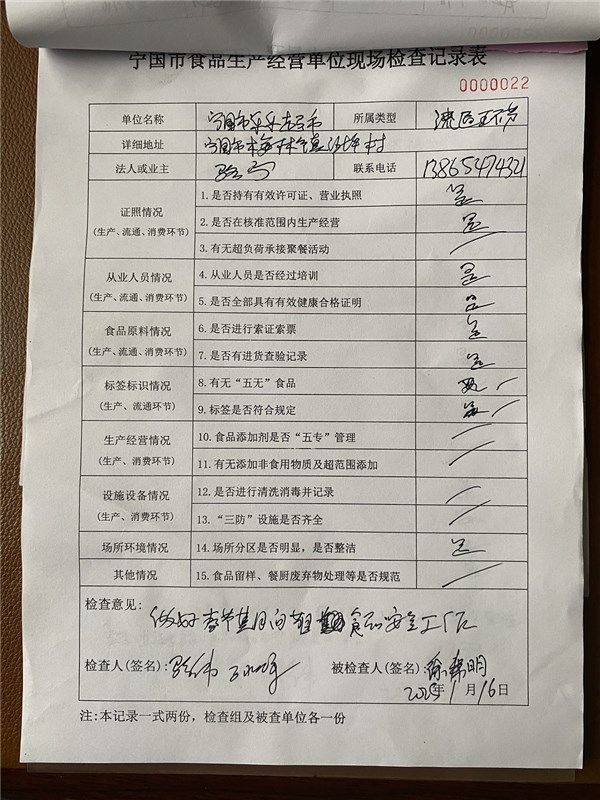 宁国市食品生产经营单位现场检查记录表
0000022
单位名称 宁国市 所属类型 流通环节
详细地址 宁国市梅林镇 村
法人或业主 联系电话 13865474321
证照情况
(生产、流通、消费环节)
1.是否持有有效许可证、营业执照 是
2.是否在核准范围内生产经营 是
3.有无超负荷承接聚餐活动 /
从业人员情况
(生产、流通、消费环节)
4.从业人员是否经过培训 是
5.是否全部具有有效健康合格证明 是
食品原料情况
(生产、流通、消费环节)
6.是否进行索证索票 是
7.是否有进货查验记录 是
标签标识情况
(生产、流通环节)
8.有无“五无”食品
9.标签是否符合规定
生产经营情况
(生产、消费环节)
10.食品添加剂是否“五专”管理 /
11.有无添加非食用物质及超范围添加 /
设施设备情况
(生产、消费环节)
12.是否进行清洗消毒并记录 /
13.“三防”设施是否齐全 /
场所环境情况 14.场所分区是否明显，是否整洁 是
其他情况 15.食品留样、餐厨废弃物处理等是否规范 /
检查意见:
做好春节期间 食品安全工作
检查人(签名):
被检查人(签名): 明
2023年1月16日
注:本记录一式两份，检查组及被查单位各一份